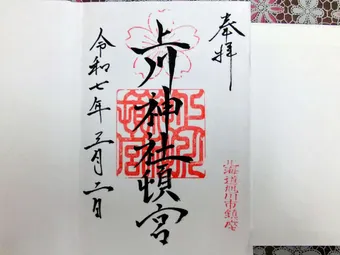 奉拝
上川神社頓宮
北海道旭川市鎮座
令和七年三月二日